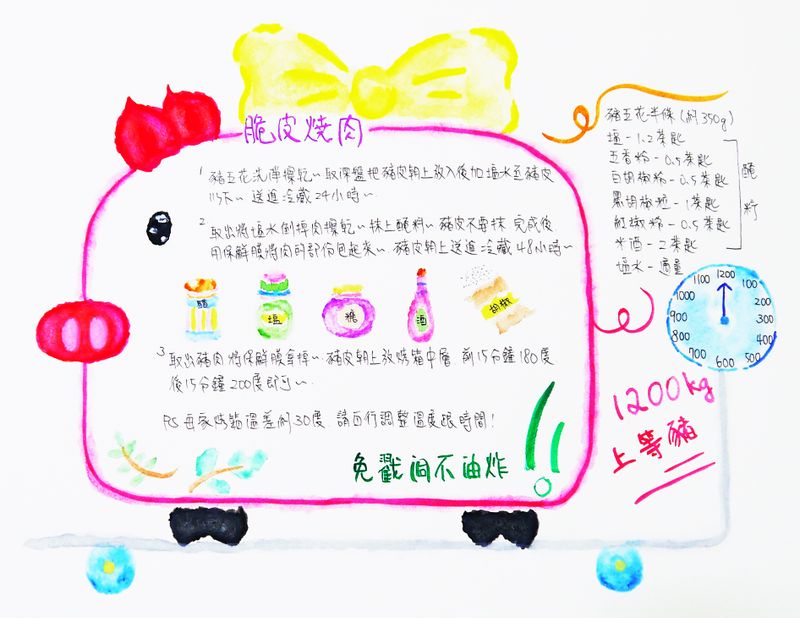 脆皮燒肉
1 豬五花洗淨擦乾~ 取深盤把豬皮朝上放入後加塩水至豬皮
1/5下~ 送進冷藏24小時~
2 取出將塩水倒掉肉擦乾~ 抹上醃料~ 豬皮不要抹 完成後
用保鮮膜將肉的部份包起來~ 豬皮朝上送進冷藏48小時~
醋 塩 糖 酒 胡椒
3 取出豬肉將保鮮膜拿掉~ 豬皮朝上放烤箱中層 前15分鐘180度
後15分鐘200度即可~
PS 每家烤箱溫差約30度 請自行調整溫度跟時間!
免戳洞不油炸
豬五花半條 (約350g)
塩-1.2茶匙
五香粉-0.5茶匙
白胡椒粉-0.5茶匙
黑胡椒粒-1茶匙
紅椒粉-0.5茶匙
米酒-2茶匙
塩水-適量
醃料
1200
100
200
300
400
500
600
700
800
900
1000
1100
1200kg
上等豬